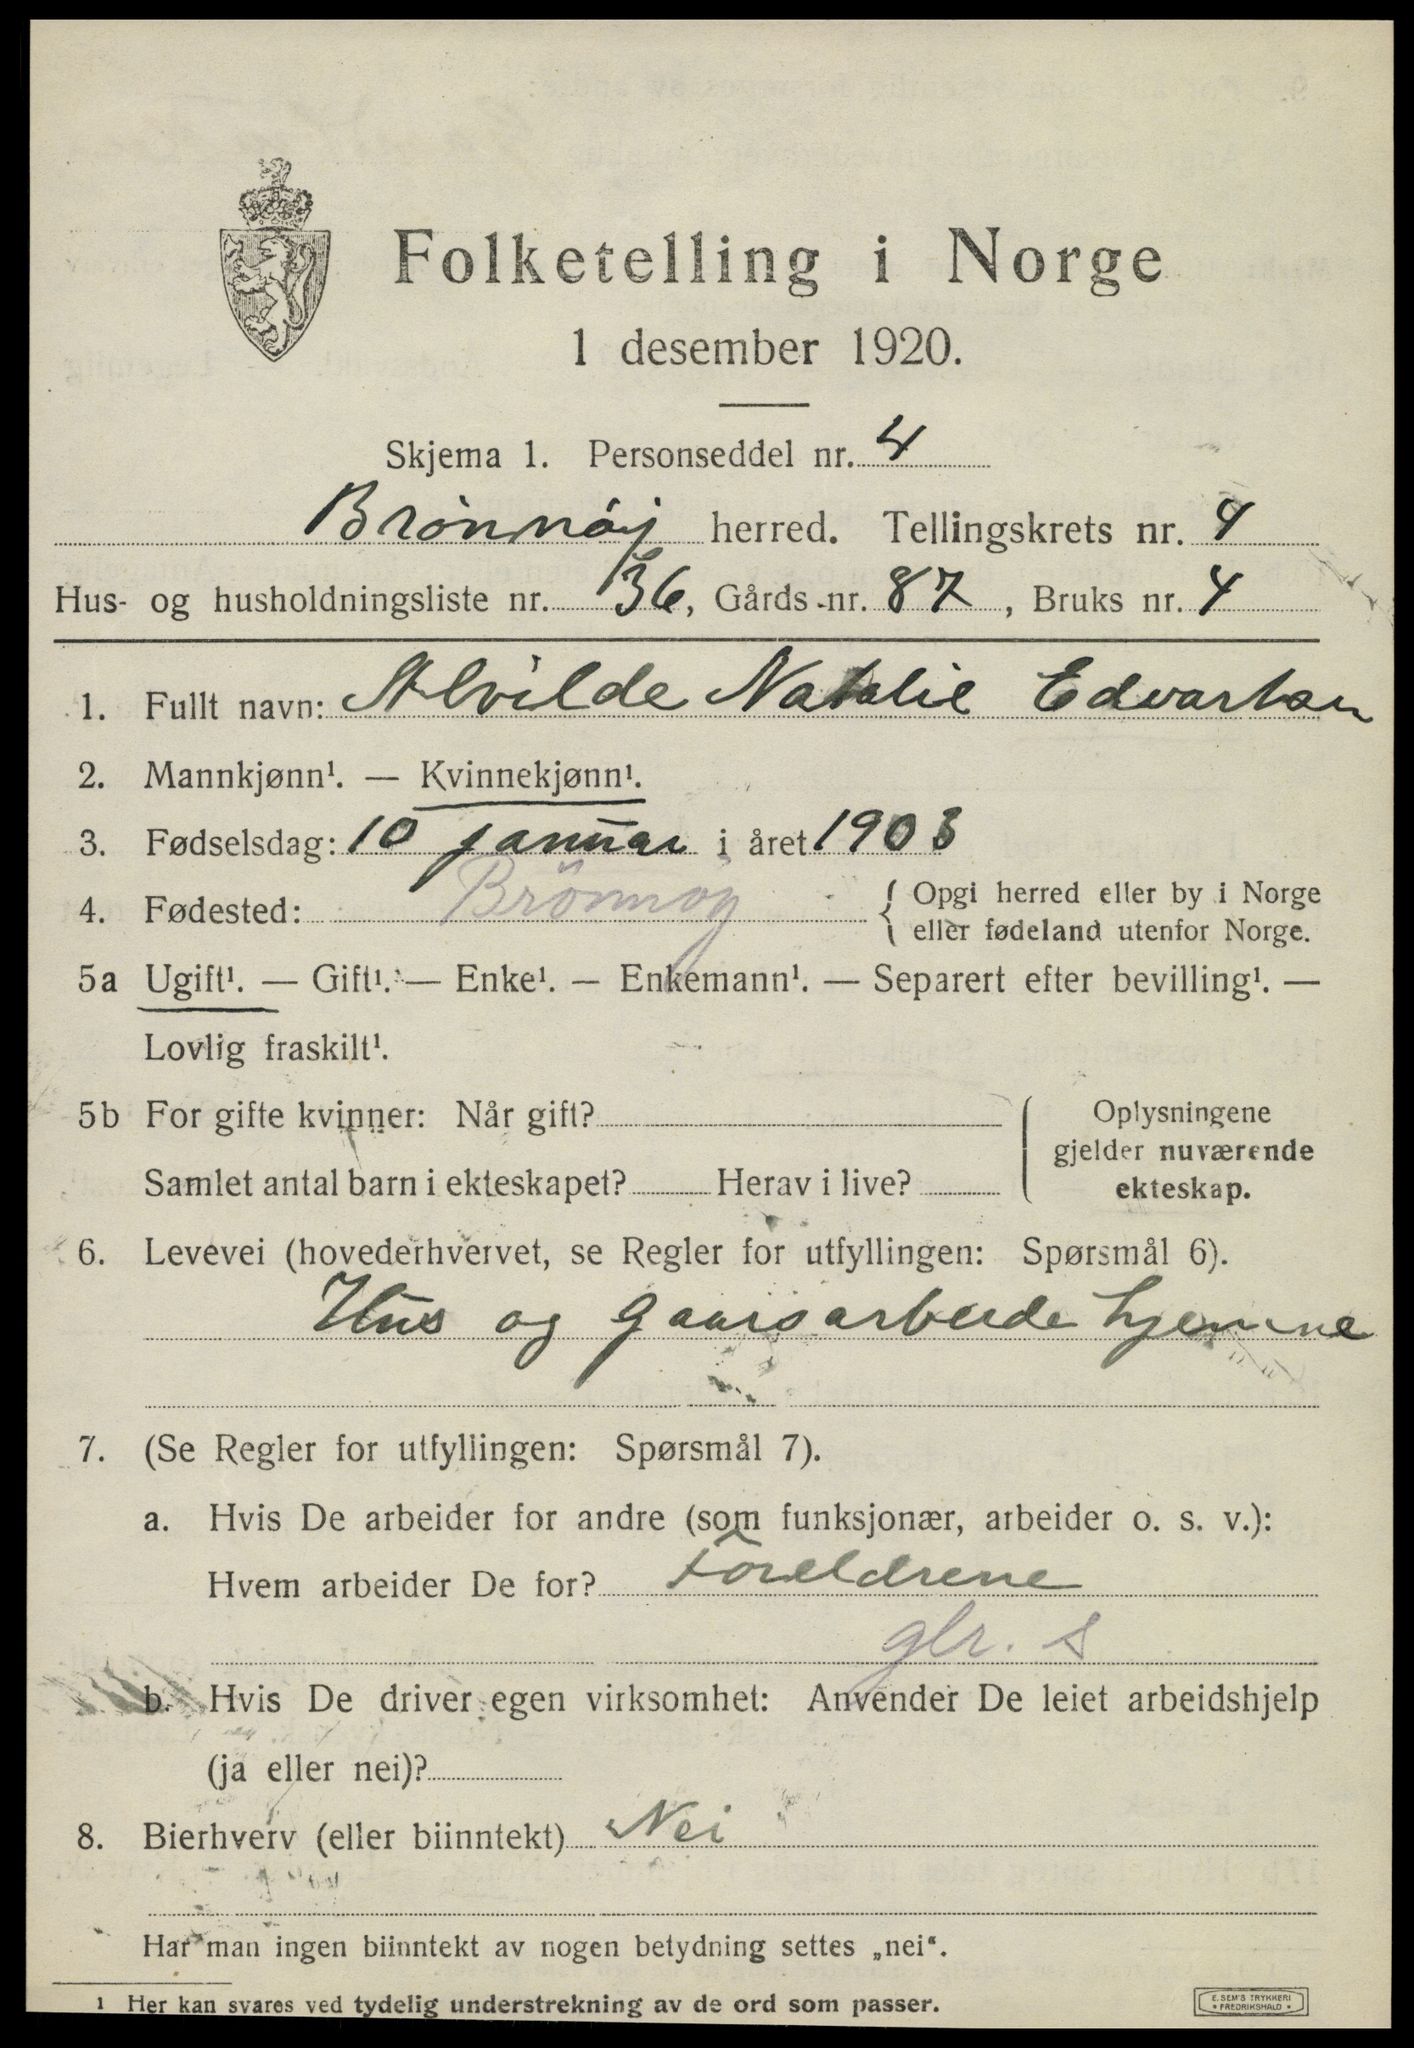 Folketelling i Norge
1 desember 1920.
Skjema 1. Personseddel nr. 4
Brønnøy herred. Tellingskrets nr. 4
Hus- og husholdningsliste nr. 36, Gårds nr. 87, Bruks nr. 4
1. Fullt navn: Alvilde Natalie Edvartsen
2. Mannkjønn¹. — Kvinnekjønn¹.
3. Fødselsdag: 10 januar i året 1903
4. Fødested: Brönnøy { Opgi herred eller by i Norge
eller fødeland utenfor Norge.
5a Ugift¹. — Gift¹. — Enke¹. — Enkemann¹. — Separert efter bevilling¹. —
Lovlig fraskilt¹.
5b For gifte kvinner: Når gift? Oplysningene
gjelder nuværende
Samlet antal barn i ekteskapet? Herav i live? ekteskap.
6. Levevei (hovederhvervet, se Regler for utfyllingen: Spørsmål 6).
Hus og gaarsarbeide hjemme
7. (Se Regler for utfyllingen: Spørsmål 7).
a. Hvis De arbeider for andre (som funksjonær, arbeider o. s. v.):
Hvem arbeider De for? Foreldrene
glr. s
b. Hvis De driver egen virksomhet: Anvender De leiet arbeidshjelp
(ja eller nei)?
8. Bierhverv (eller biinntekt) Nei
Har man ingen biinntekt av nogen betydning settes „nei“.
1 Her kan svares ved tydelig understrekning av de ord som passer.
E. SEM'S TRYKKERI
• FREDRIKSHALD •